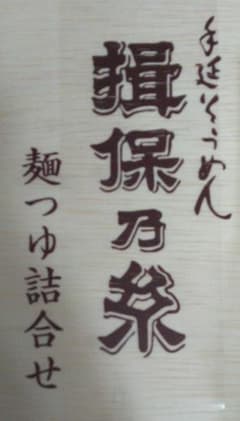 手延そうめん
揖保乃糸
麺つゆ詰合せ